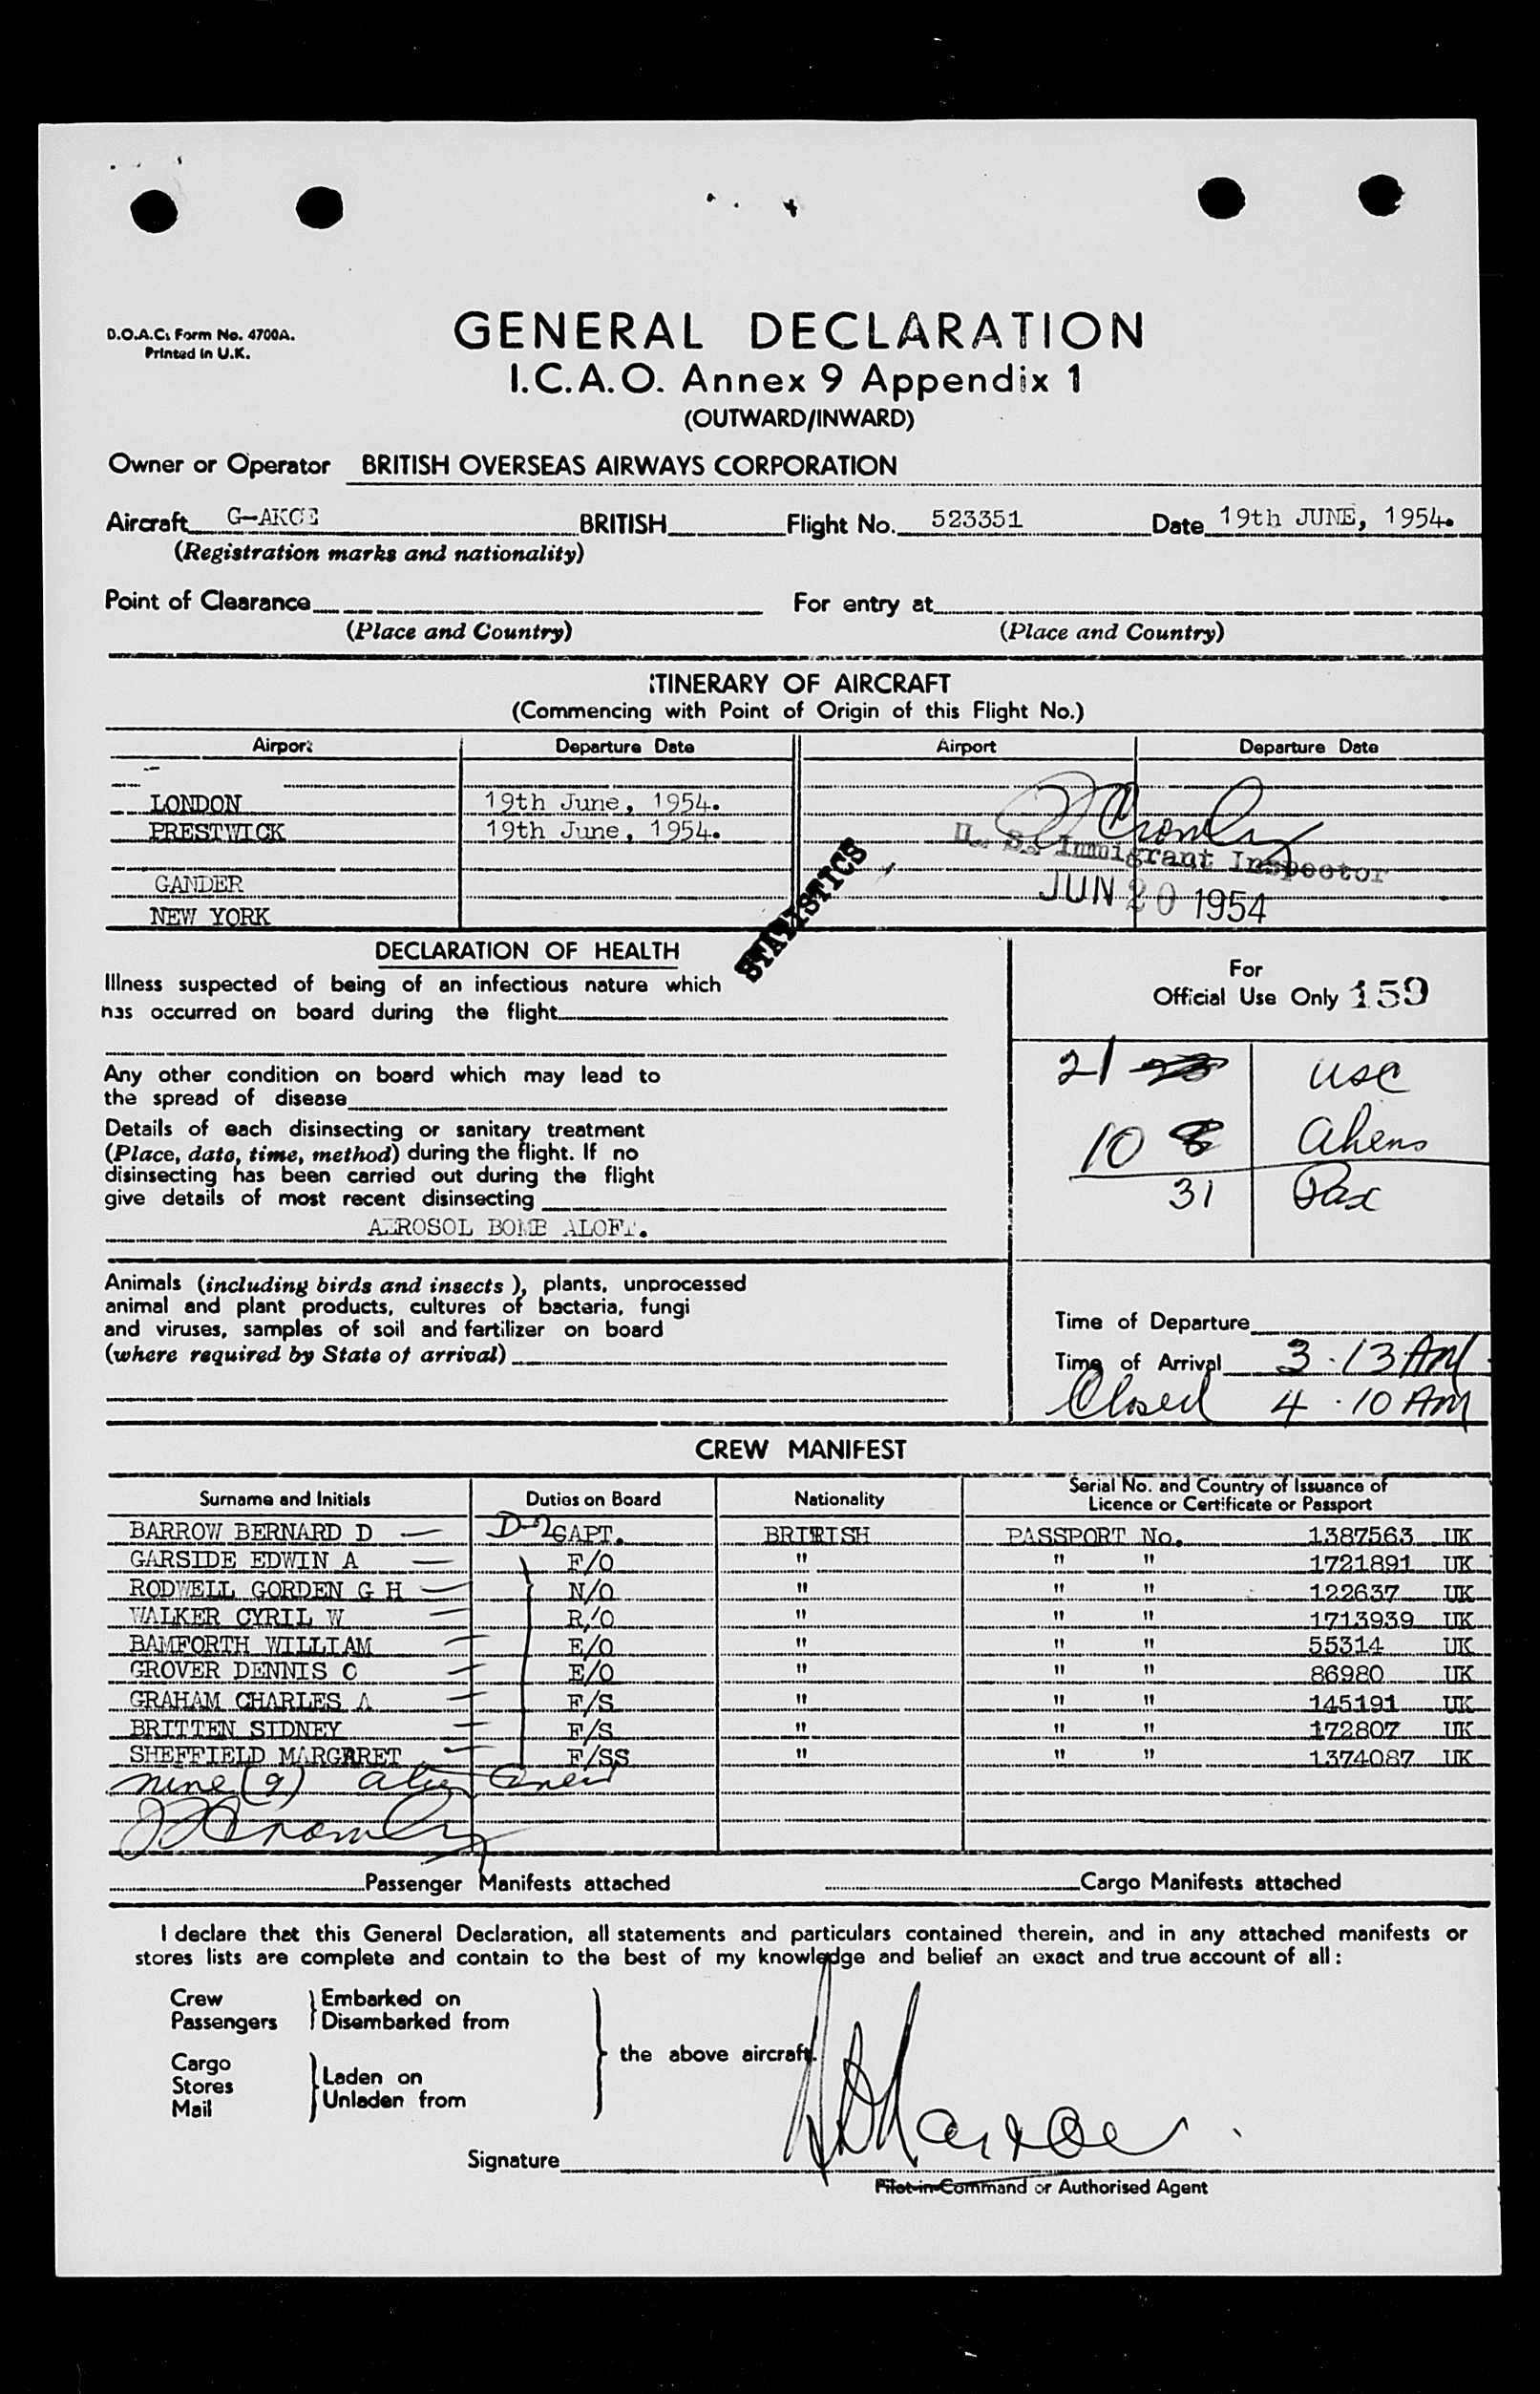 B.O.A.C. Form No. 4700A.
Printed in U.K.
GENERAL DECLARATION
I.C.A.O. Annex 9 Appendix 1
(OUTWARD/INWARD)
Owner or Operator BRITISH OVERSEAS AIRWAYS CORPORATION
Aircraft G-AKCE BRITISH Flight No. 523351 Date 19th JUNE, 1954.
(Registration marks and nationality)
Point of Clearance For entry at
(Place and Country) (Place and Country)
ITINERARY OF AIRCRAFT
(Commencing with Point of Origin of this Flight No.)
Airport Departure Date Airport Departure Date
LONDON 19th June, 1954.
PRESTWICK 19th June, 1954.
U. S. Immigrant Inspector
GANDER
JUN 20 1954
NEW YORK
STATISTICS
DECLARATION OF HEALTH
Illness suspected of being of an infectious nature which
has occurred on board during the flight
For
Official Use Only 159
Any other condition on board which may lead to
the spread of disease
21 28 usc
Details of each disinsecting or sanitary treatment
(Place, date, time, method) during the flight. If no
disinsecting has been carried out during the flight
give details of most recent disinsecting
10 8 Aliens
31 Pax
AEROSOL BOMB ALOFT.
Animals (including birds and insects), plants, unprocessed
animal and plant products, cultures of bacteria, fungi
and viruses, samples of soil and fertilizer on board
(where required by State of arrival)
Time of Departure
Time of Arrival 3.13 AM
Closed 4.10 AM
CREW MANIFEST
Surname and Initials Duties on Board Nationality Serial No. and Country of Issuance of
Licence or Certificate or Passport
BARROW BERNARD D D-2 CAPT. BRITISH PASSPORT No. 1387563 UK
GARSIDE EDWIN A F/O " " " 1721891 UK
RODWELL GORDEN G H N/O " " " 122637 UK
WALKER CYRIL W R/O " " " 1713939 UK
BAMFORTH WILLIAM E/O " " " 55314 UK
GROVER DENNIS C E/O " " " 86980 UK
GRAHAM CHARLES A F/S " " " 145191 UK
BRITTEN SIDNEY F/S " " " 172807 UK
SHEFFIELD MARGARET F/SS " " " 1374087 UK
nine (9) alien crew
Passenger Manifests attached Cargo Manifests attached
I declare that this General Declaration, all statements and particulars contained therein, and in any attached manifests or
stores lists are complete and contain to the best of my knowledge and belief an exact and true account of all:
Crew
Passengers
Embarked on
Disembarked from
Cargo
Stores
Mail
Laden on
Unladen from
the above aircraft.
Signature
Pilot-in-Command or Authorised Agent